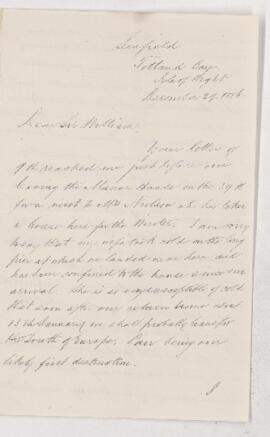 Totland Bay
Isle of Wight
December 29. 1886
Dear Sir William
Your letter of
9th reached me just before our
leaving the Manor House on the
for a visit to Mrs who has taken
a house here for the Winter. I am sorry
to say that my wife took cold on the long
pier at which we landed and has
been confined to the house since our
arrival. She is so susceptible of cold
that soon after our return home about
15th January we shall probably
the South of Europe. Pau being our
likely first destination.